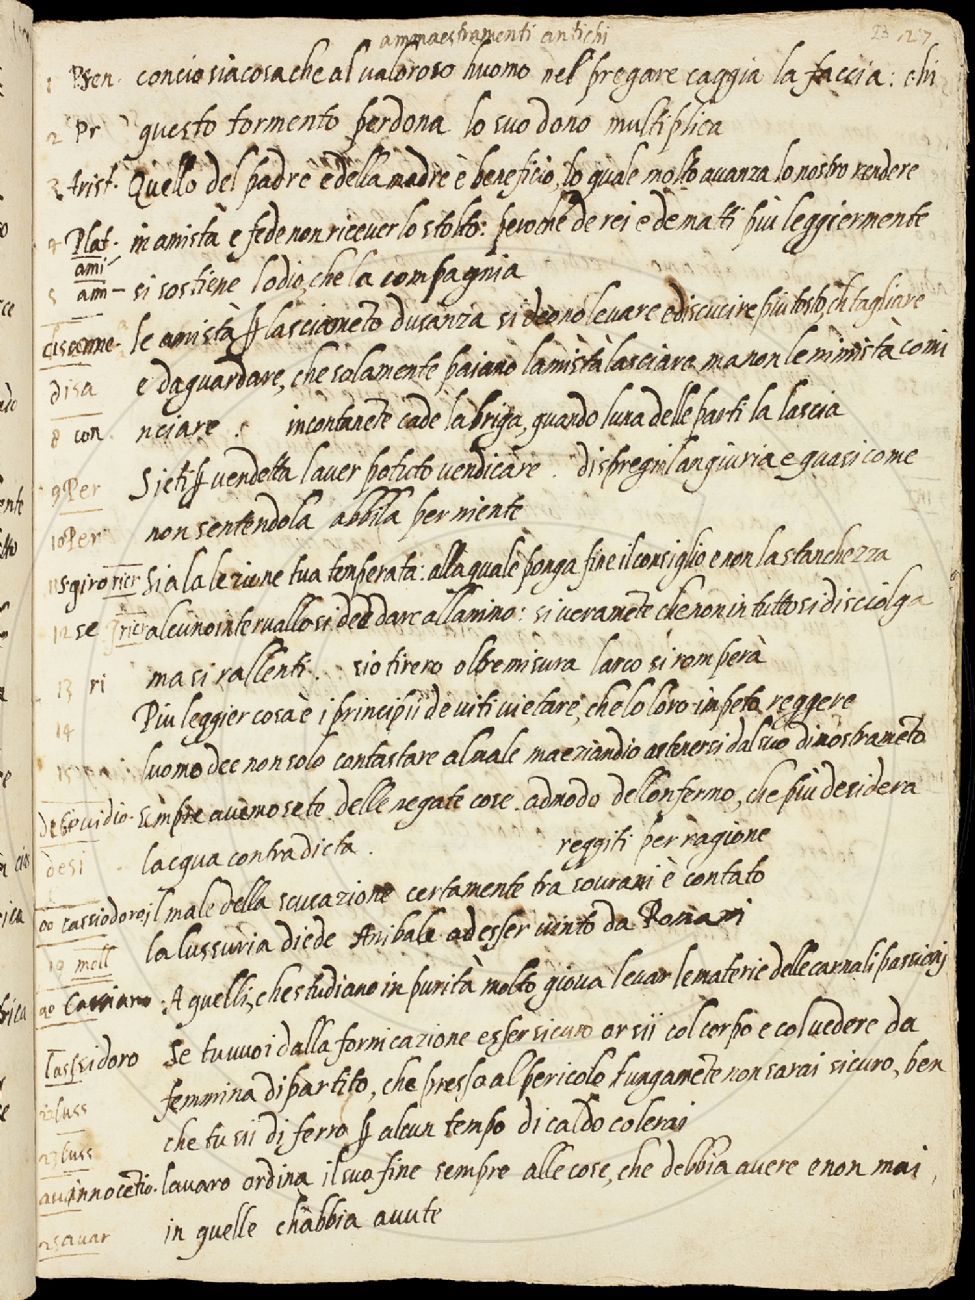 ammaestramenti antichi 23 127
1 Psen. conciosiacosache al valoroso huomo nel pregare caggia la faccia: chi
2 Pr questo tormento perdona lo suo dono multiplica
3 Arist. Quello del padre e della madre è beneficio, lo quale molto avanza lo nostro rendere
4 Plat. in amistà e fede non ricever lo stolto: peroche de rei e de matti più leggiermente
ami
5 am si sostiene lodio, che la compagnia
le amistà ꝑ lasciameto dusanza si deono levare e discucire più tosto, ch tagliare
disa e da guardare, che solamente paiano lamistà lasciare ma non le nimistà comi
8 con nciare. incontanete cade la briga, quando luna delle parti la lascia
9 Per Sieti ꝑ vendetta laver potuto vendicare. dispregi langiuria e quasi come
10 Per non sentendola abbila per niente
11 Sgiro ricr Sia la lezione tua temperata: alla quale ponga fine il consiglio e non la stanchezza
12 se ricr alcuno intervallo si dee dare allanimo: si veramete che non in tutto si disciolga
13 ri ma si rallenti. sio tirero oltremisura larco si romperà
14 Piu leggier cosa è i principii de viti vietare, che lo loro impeto reggere
15 luomo dee non solo contastare al male ma eziandio astenersi dal suo dimostrameto
ovidio. Sempre avemo sete delle negate cose. a modo dellonfermo, che più desidera
desi lacqua contradicta. reggiti per ragione
cassiodoro il male della scusazione certamente tra sourani è contato
19 moll la lussuria diede Anibale ad esser vinto da Romani
20 Cassiano. A quelli, che studiano in purità molto giova levar le materie delle carnali passioni
Isidoro Se tu vuoi dalla fornicazione esser sicuro or sii col corpo e col vedere da
22 luss femmina dipartito, che presso al pericolo lungamete non sarai sicuro, ben
23 luss che tu sii di ferro ꝑ alcun tempo di caldo colerai
innocetio. lavaro ordina il suo fine sempre alle cose, che debbia avere e non mai,
25 avar in quelle chabbia avute